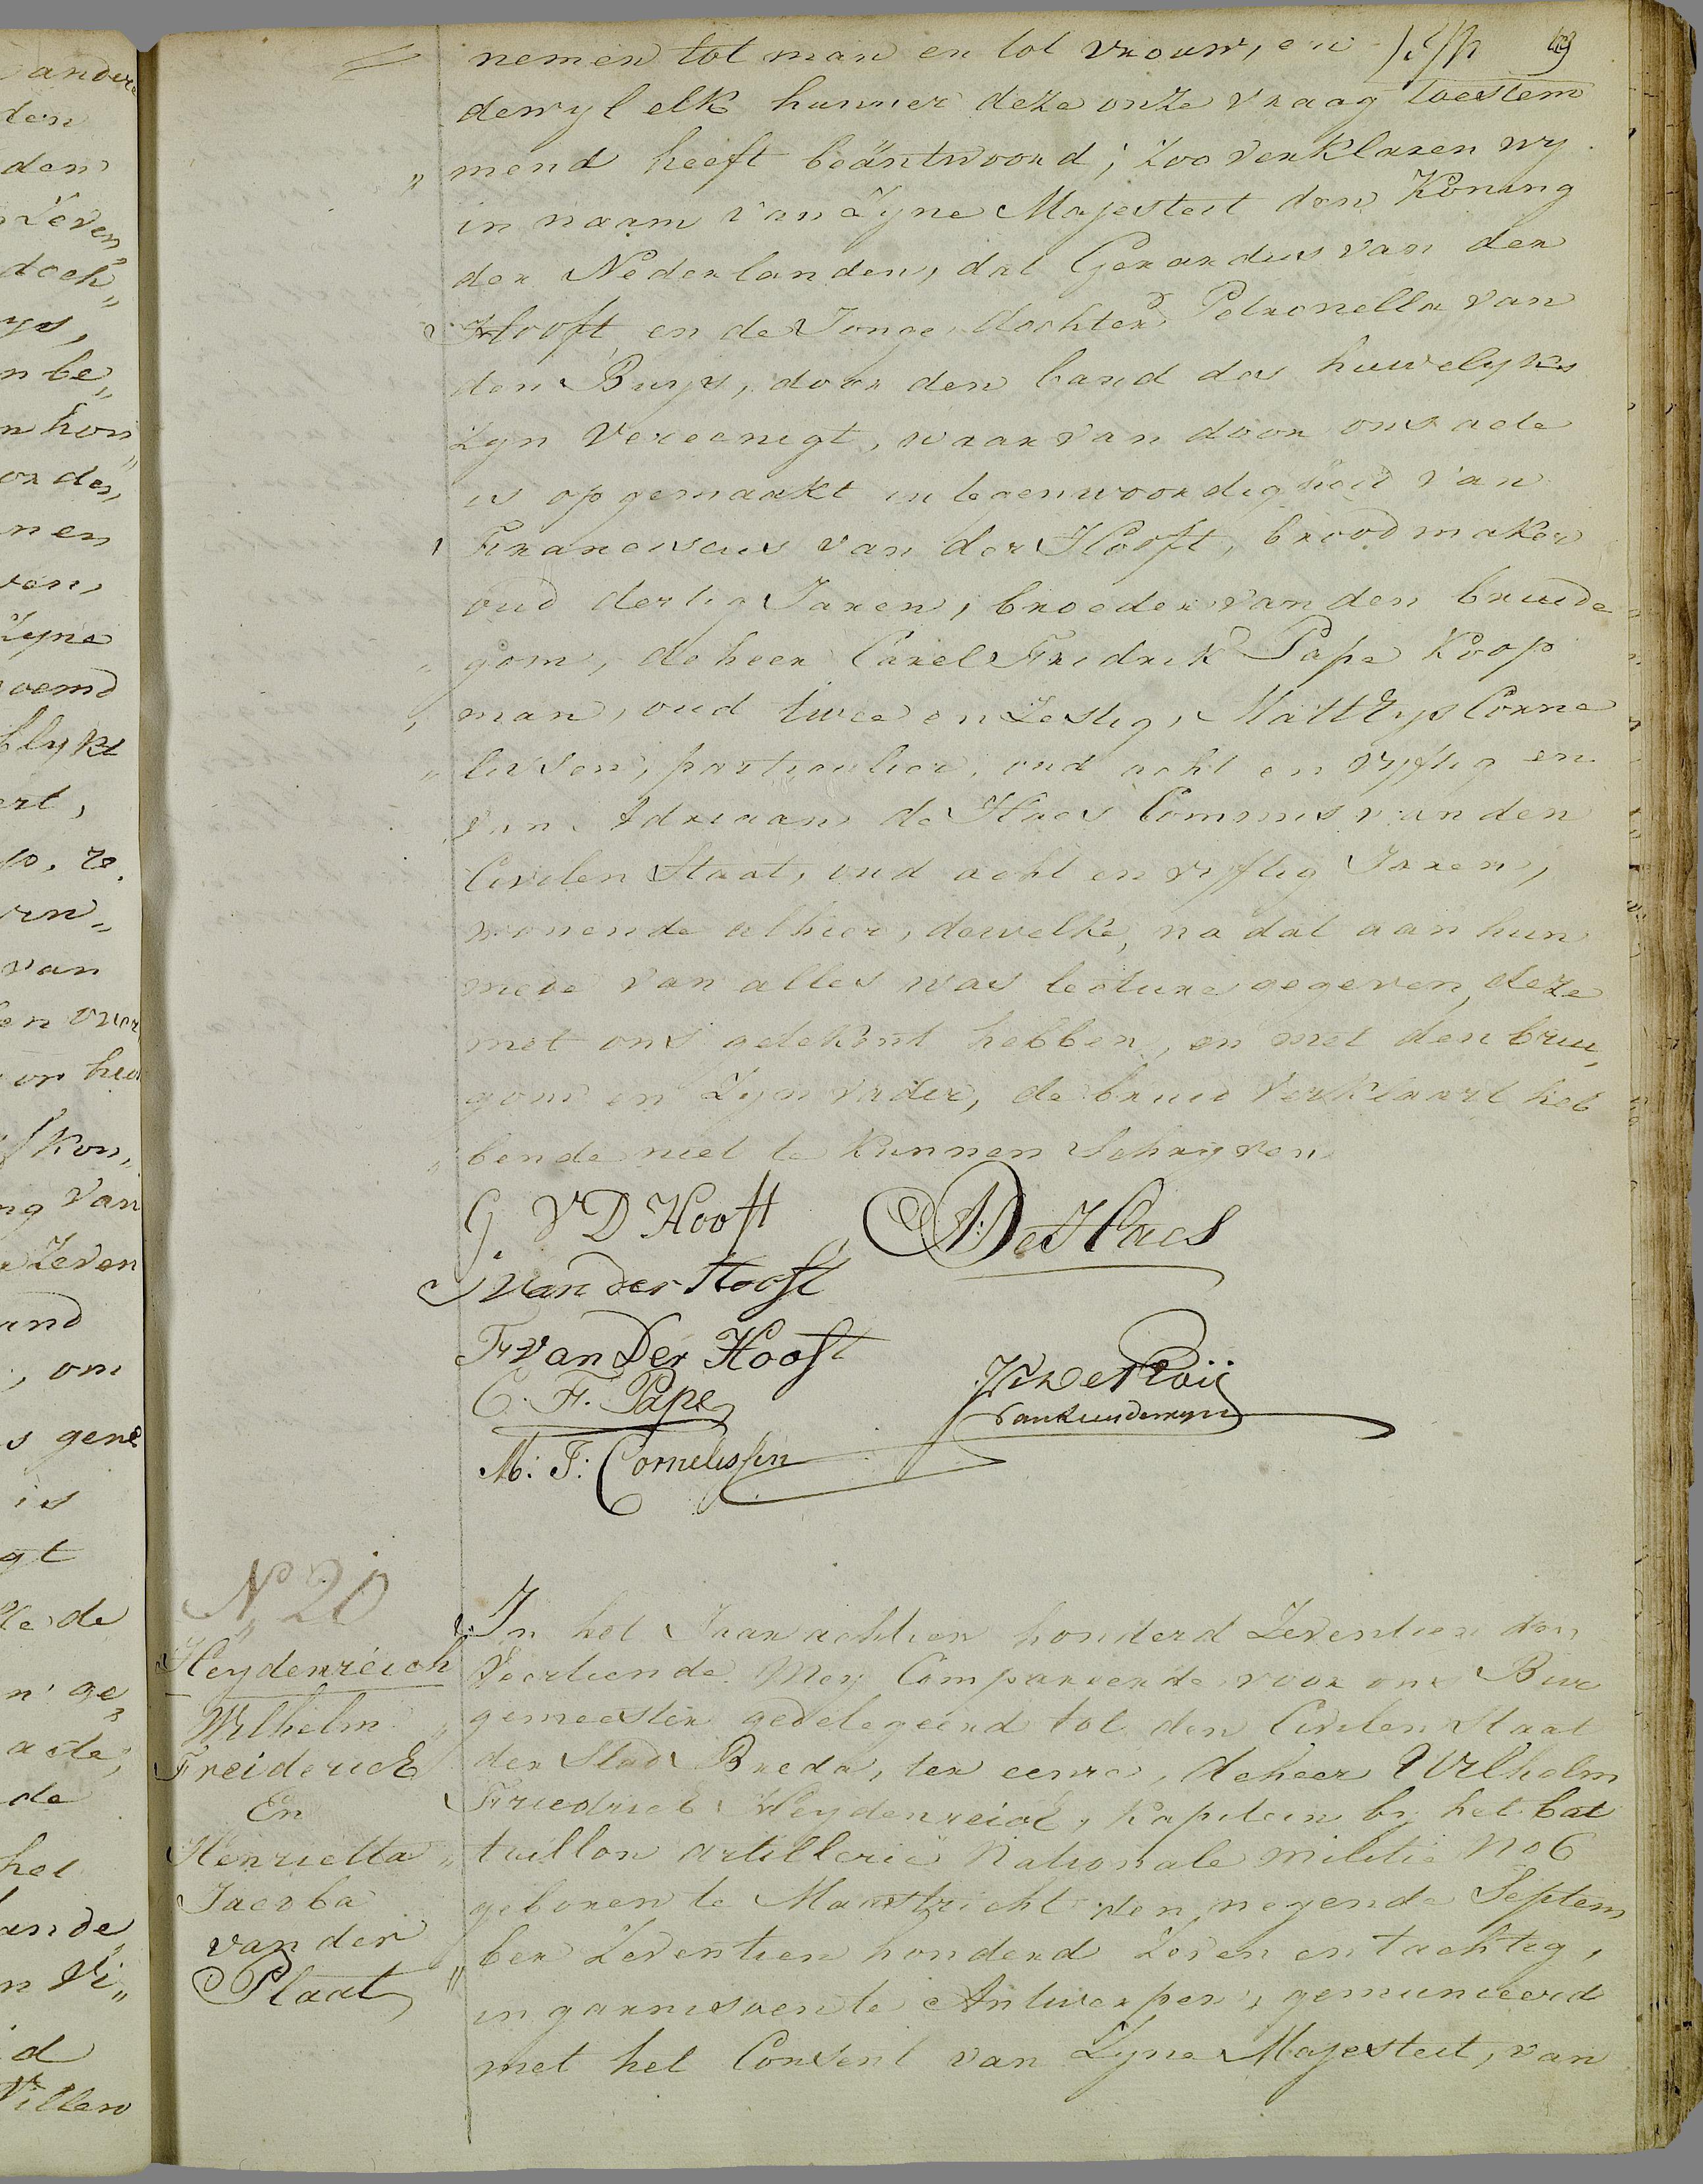 nemen tot man en tot vrouw, en
dewyl elk hunner deze onze vraag toestem
„ mend heeft beäntwoord; zoo verklaren wy
in naam van Zyne Majesteit den Koning
der Nederlanden, dat Gerardus van der
Hooft en de Jonge dochter Petronella van
den Buys, door den band des huwelyks
zyn vereenigt, waar van door ons acte
is opgemaakt in tegenwoordigheid van
Franciscus van der Hooft, broodmaker
oud dertig Jaren, broeder van den bruide
„ gom, de heer Carel Fredrik Pape Koop
„ man, oud twee en zestig, Matthys Corne
„ lissen, particulier, oud acht en vyftig en
van Adriaan de Haes Commis van den
Civilen Staat, oud acht en vyftig Jaren,
wonende alhier, dewelke, na dat aan hun
mede van alles was lecture gegeven, deze
met ons getekent hebben, en met den bru„
gom en zyn vader, de bruid verklaart heb
„ bende niet te kunnen Schryven
G. V D Hooft
A De Haes
J van der Hooft
F van Der Hooft
C. F. Pape
M: J: Cornelissen
N 20
Heydenreich
Wilhelm
Freiderich
En
Henrietta
Jacoba
van der
Plaat
In het Jaar achtien honderd Zeventien den
Veertiende Mey Compareerde voor ons Bur
gemeester gedelegeerd tot den Civilen Staat
der Stad Breda, ter eenre, de heer Wilhelm
Friedrich Heydenreich, Kapitein by het bat
„ taillon artillerie Nationale militie No 6
geboren te Maastricht den negende Septem
ber Zeventien honderd Zeven en tachtig,
„ in garnisoen te Antwerpen, gemunieerd
met het Consent van Zyne Majesteit, van